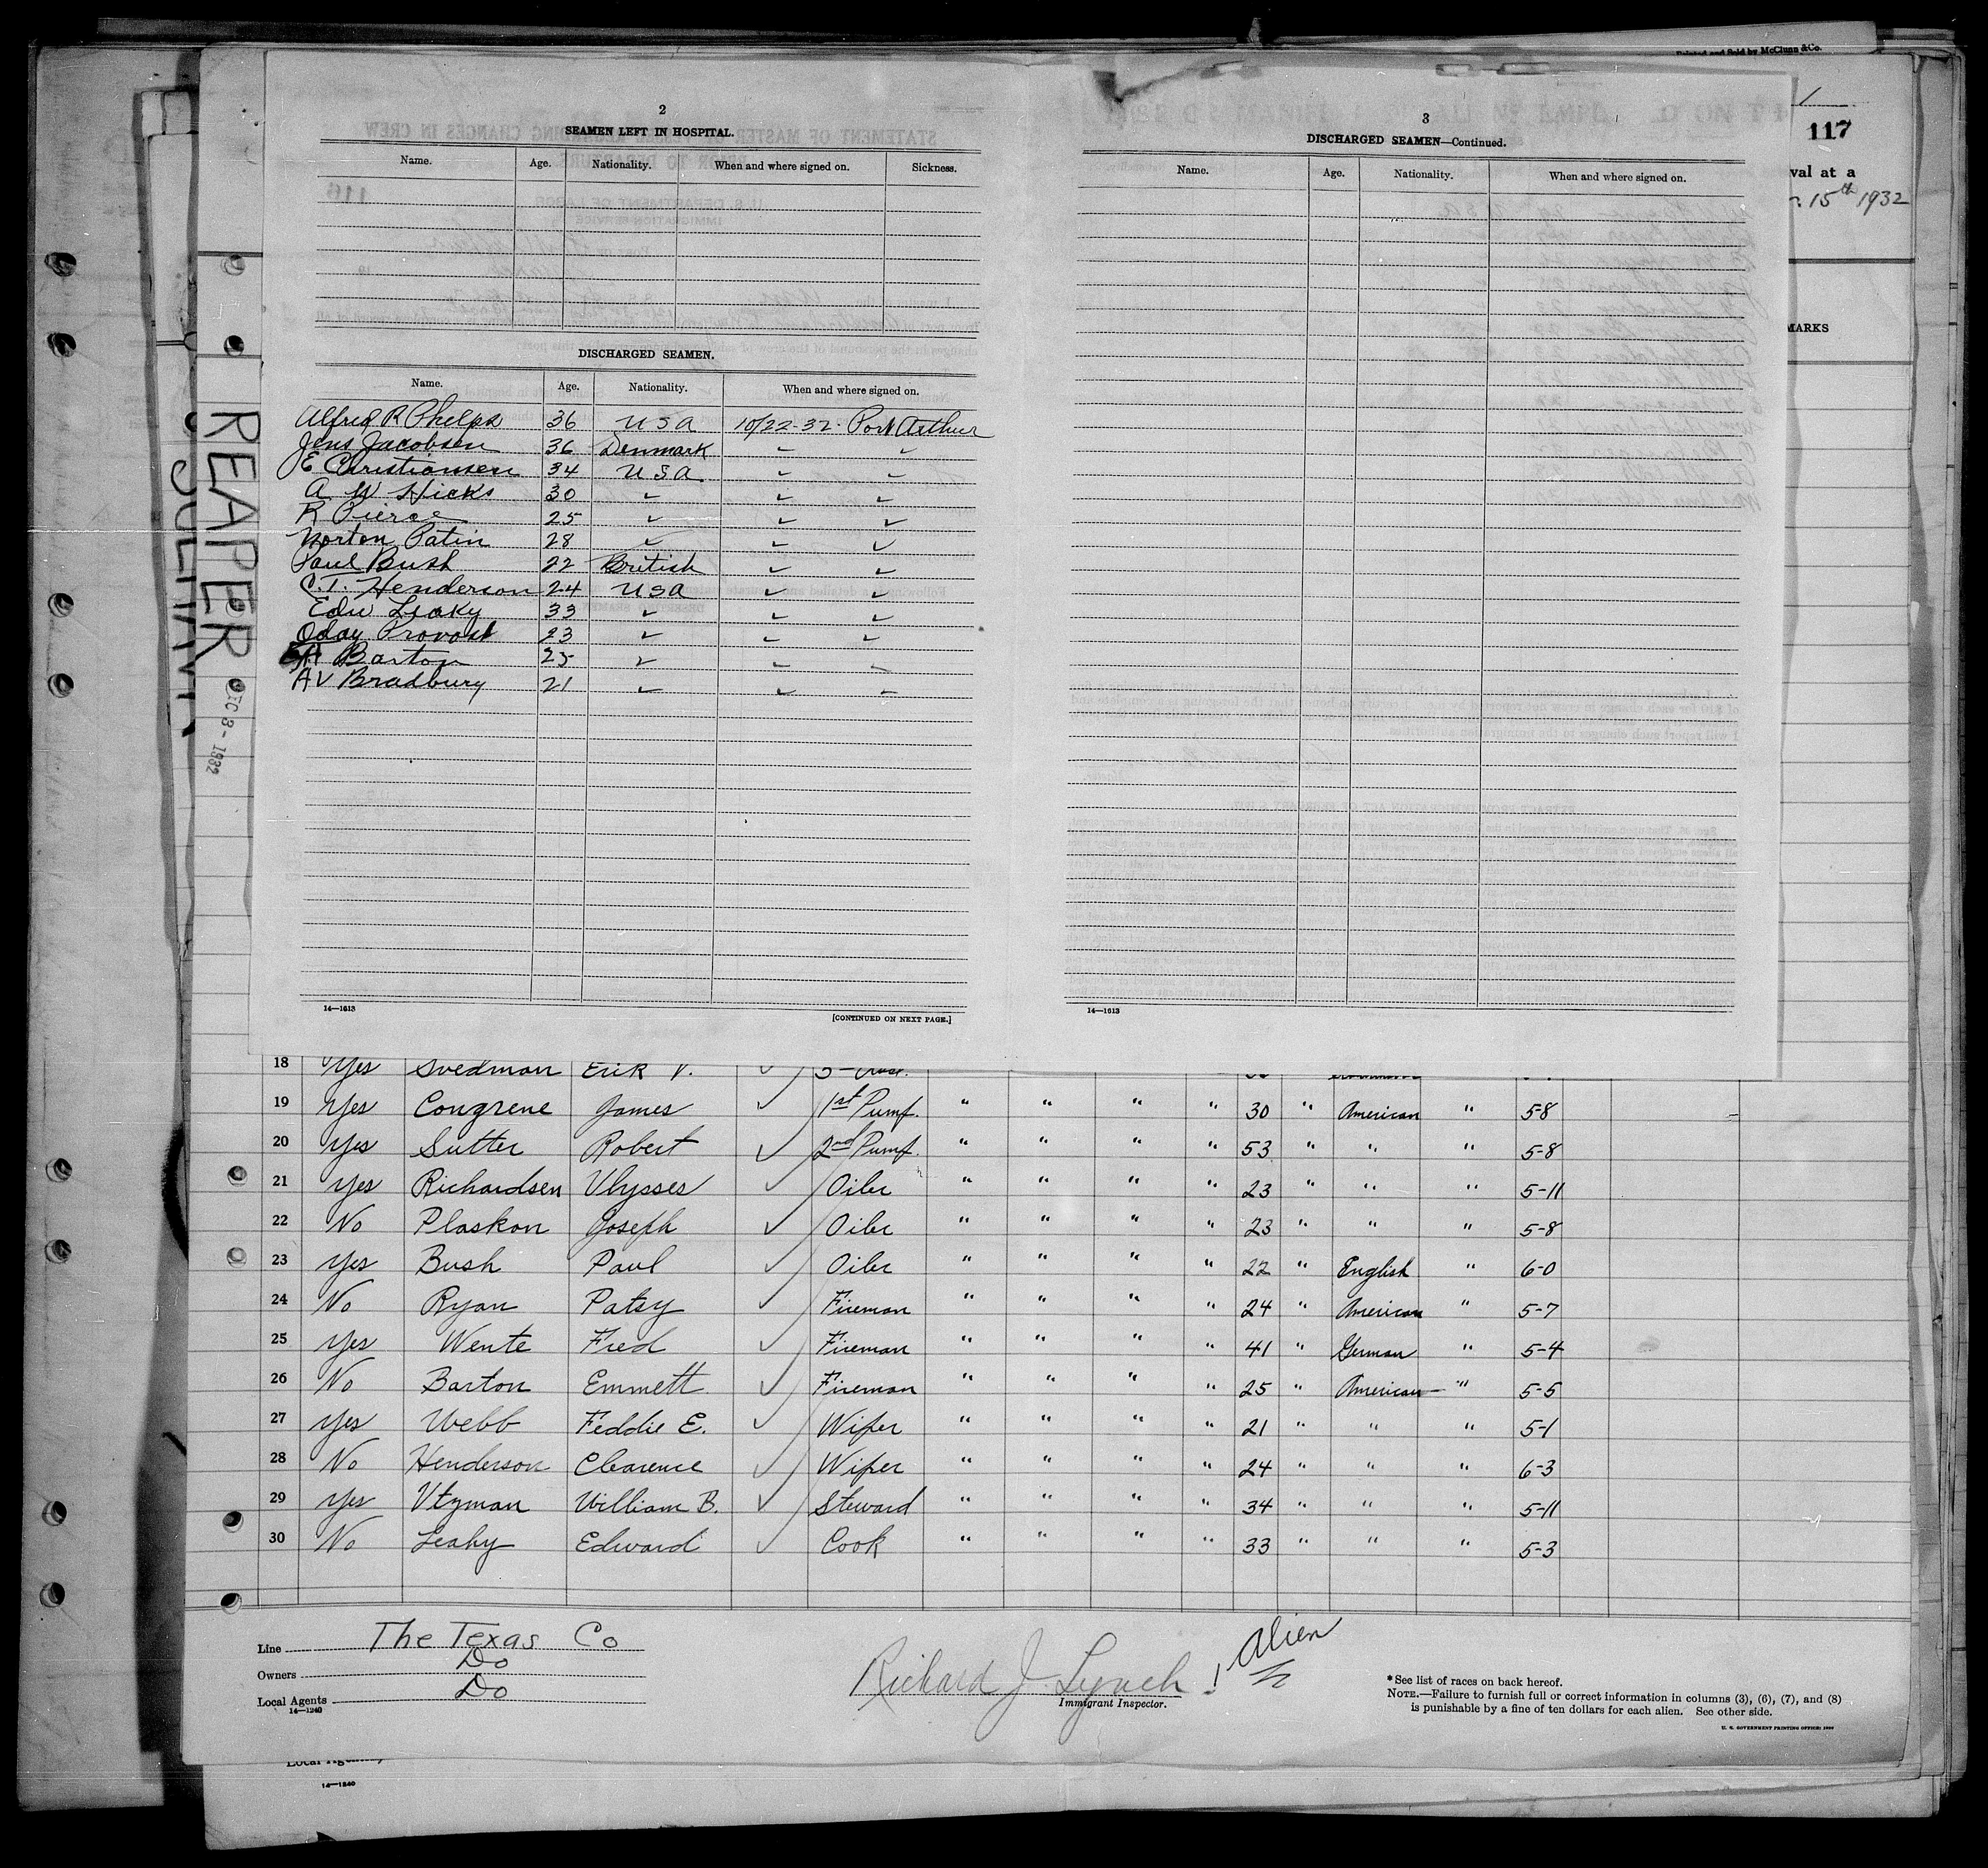 Printed and Sold by McClunn & Co.
117
val at a
15th 1932
MARKS
REAPER
DEC 3 - 1932
2
SEAMEN LEFT IN HOSPITAL.
Name. Age. Nationality. When and where signed on. Sickness.
DISCHARGED SEAMEN.
Name. Age. Nationality. When and where signed on.
Alfred R Phelps 36 USA 10/22-32. Port Arthur
Jens Jacobsen 36 Denmark " "
E Christiansen 34 USA " "
A W Hicks 30 " " "
R Pierce 25 " " "
Norton Patin 28 " " "
Paul Bush 22 British " "
C.T. Henderson 24 USA " "
Edw Leaky 33 " " "
Oday Provost 23 " " "
EH Barton 25 " " "
AV Bradbury 21 " " "
14—1613
[CONTINUED ON NEXT PAGE.]
3
DISCHARGED SEAMEN—Continued.
Name. Age. Nationality. When and where signed on.
14—1613
18 Yes Svedman Erik V.
19 Yes Congrene James ✓ 1st Pumf. " " " " 30 " American " 5-8
20 Yes Sutter Robert ✓ 2nd Pumf. " " " " 53 " " " 5-8
21 Yes Richardsen Ulysses ✓ Oiler " " " " 23 " " " 5-11
22 No Plaskon Joseph ✓ Oiler " " " " 23 " " " 5-8
23 Yes Bush Paul ✓ Oiler " " " " 22 " English " 6-0
24 No Ryan Patsy ✓ Fireman " " " " 24 " American " 5-7
25 Yes Wente Fred ✓ Fireman " " " " 41 " German " 5-4
26 No Barton Emmett ✓ Fireman " " " " 25 " American " 5-5
27 Yes Webb Feddie E. ✓ Wifer " " " " 21 " " " 5-1
28 No Henderson Clearence ✓ Wifer " " " " 24 " " " 6-3
29 Yes Utzman William B. ✓ Steward " " " " 34 " " " 5-11
30 No Leahy Edward ✓ Cook " " " " 33 " " " 5-3
Line The Texas Co
Owners Do
Local Agents Do
14—1240
Richard J. Lynch
Immigrant Inspector.
1 Alien
*See list of races on back hereof.
NOTE.—Failure to furnish full or correct information in columns (3), (6), (7), and (8)
is punishable by a fine of ten dollars for each alien. See other side.
14—1240